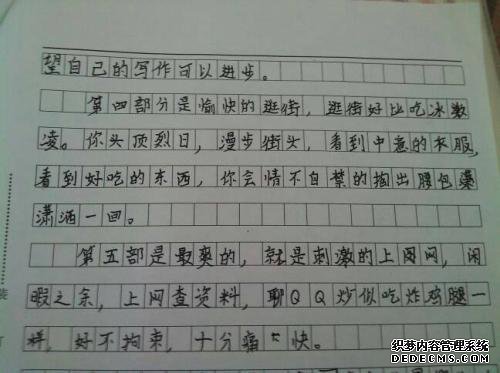 望自己的写作可以进步。
第四部分是愉快的逛街，逛街好比吃冰激
凌。你头顶烈日，漫步街头，看到中意的衣服，
看到好吃的东西，你会情不自禁的掏出腰包潇
潇洒一回。
第五部是最爽的，就是刺激的上网网，闲
暇之余，上网查资料，聊QQ炒似吃炸鸡腿一
样，好不拘束，十分痛快。
装
订
织梦内容管理系统
DEDECMS.COM